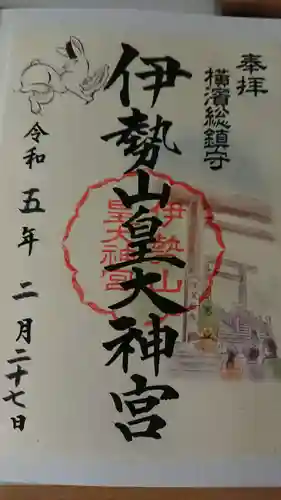 奉拝
横濱総鎮守
伊勢山皇大神宮
伊勢山
皇大神宮
令和五年二月二十七日